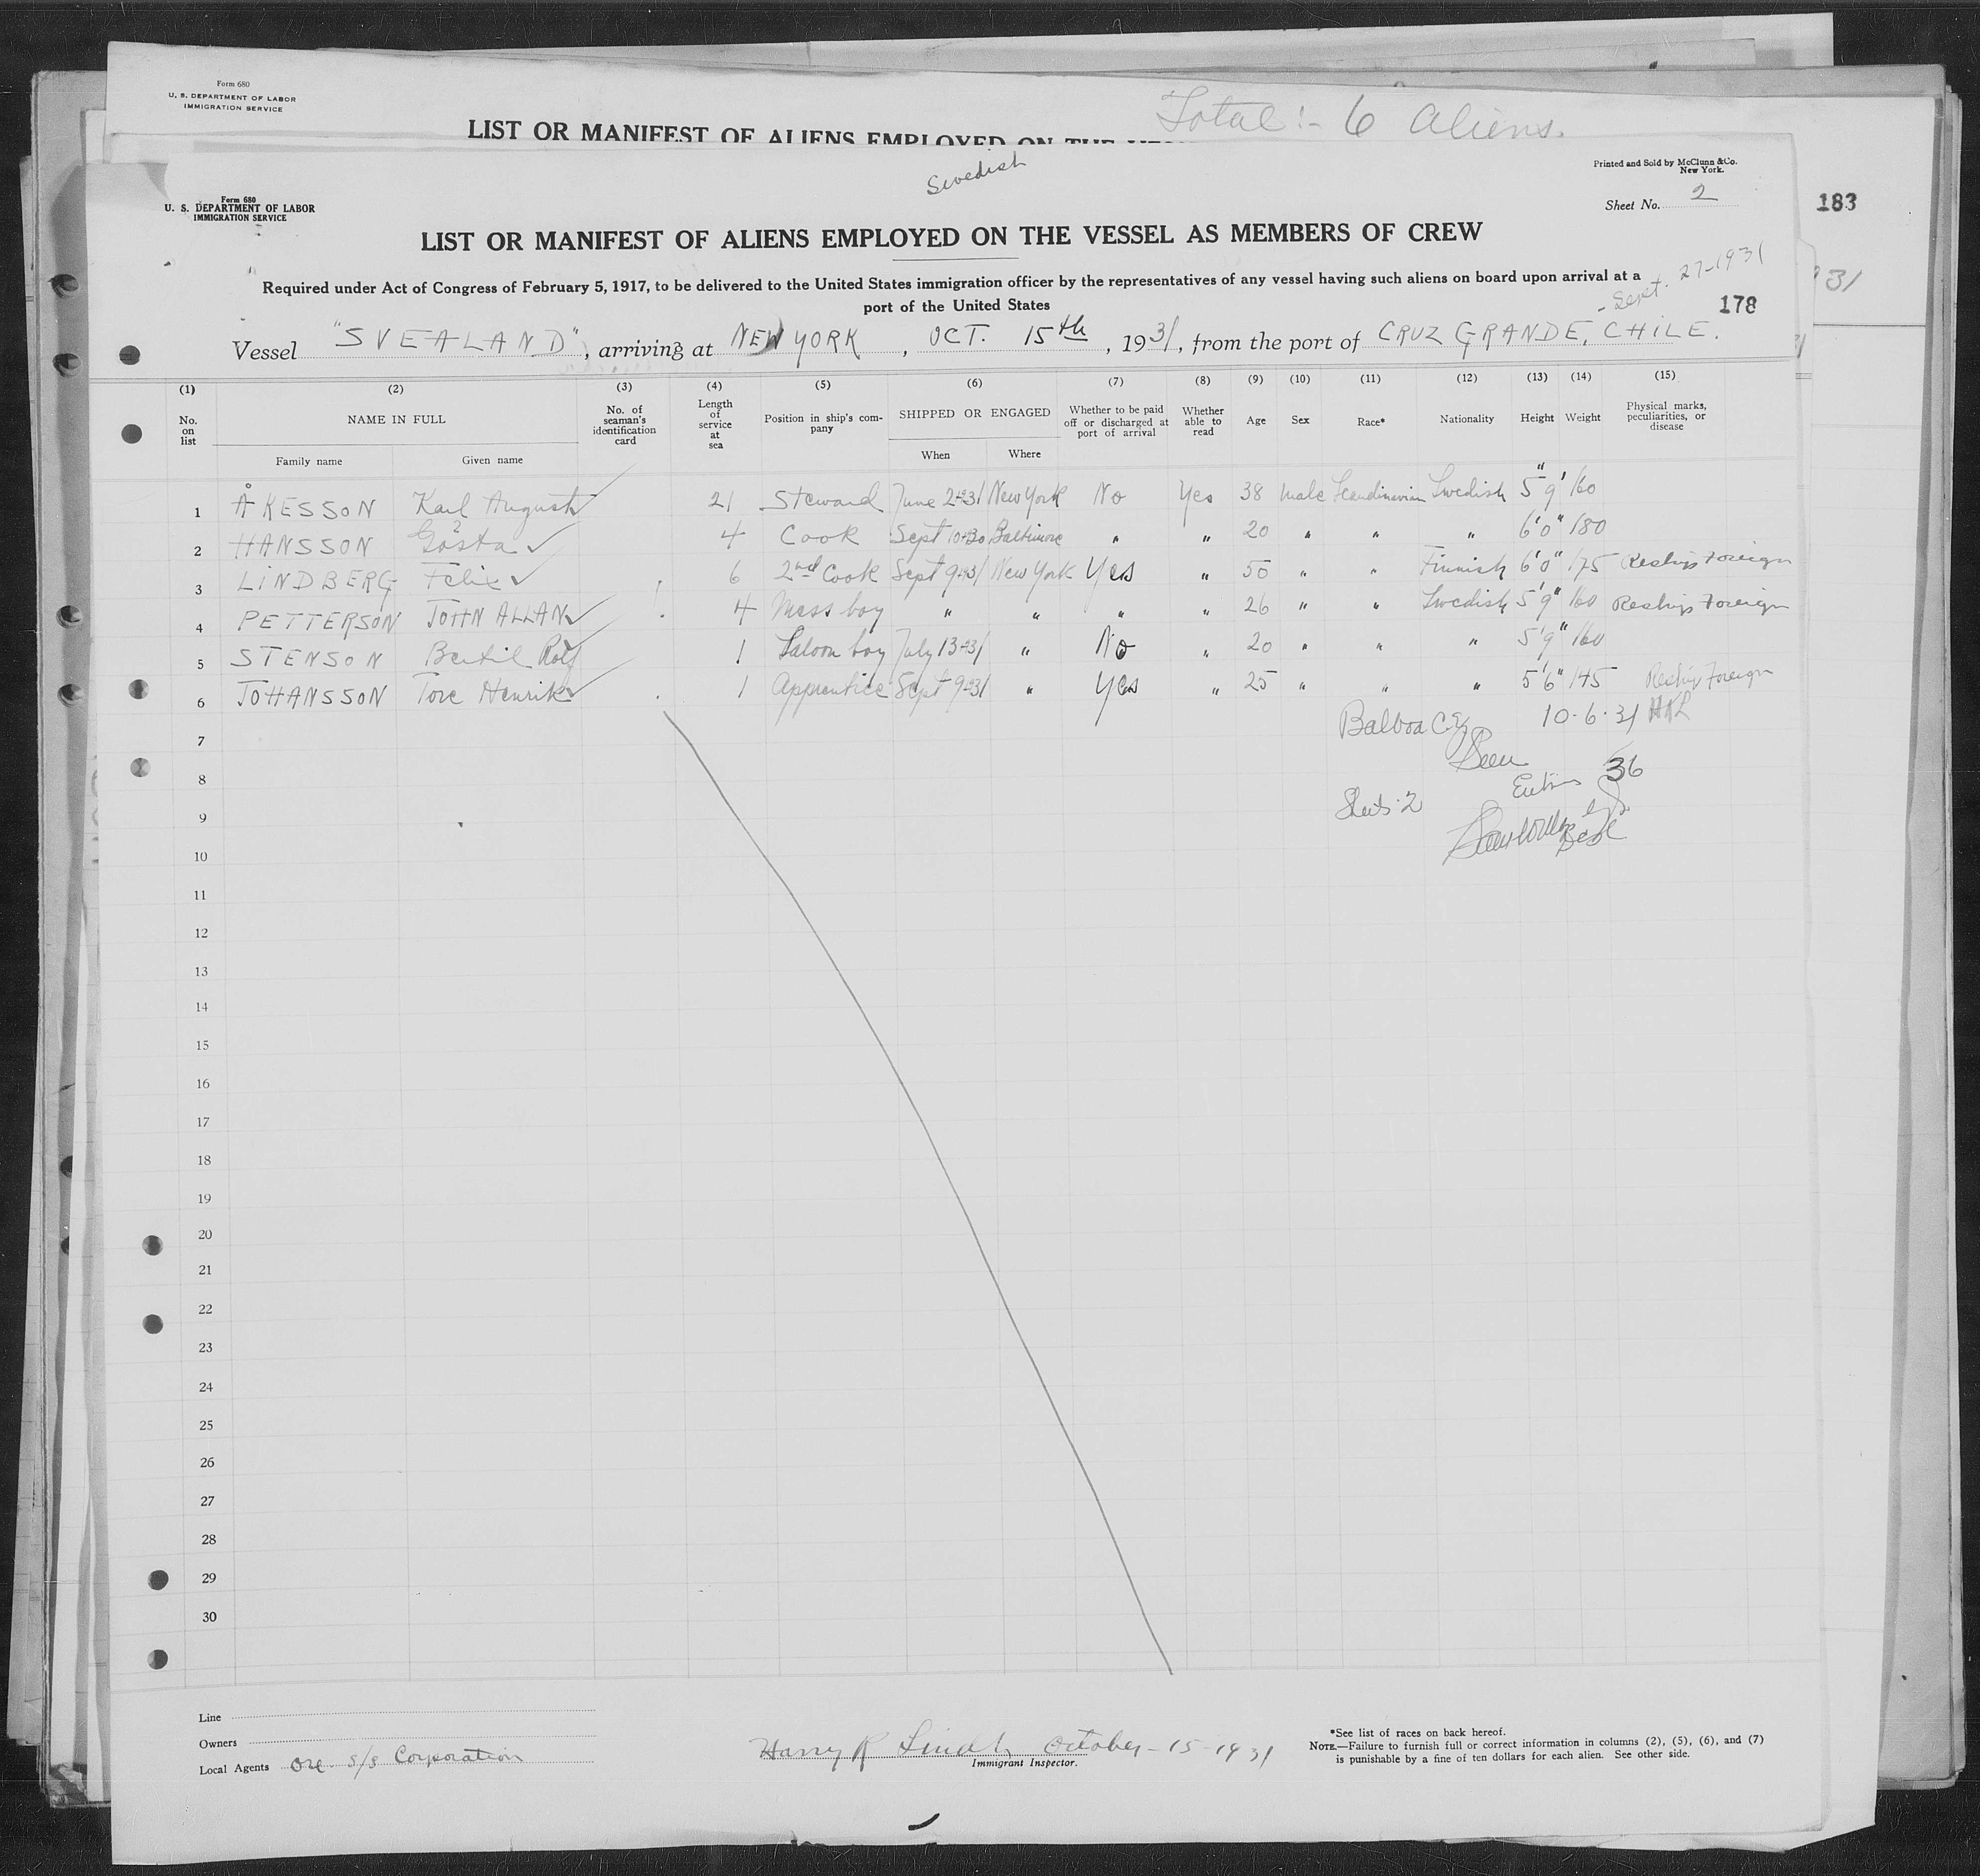 Form 680
U. S. DEPARTMENT OF LABOR
IMMIGRATION SERVICE
Total:- 6 Aliens.
LIST OR MANIFEST OF ALIENS EMPLOYED ON THE
Swedish
Printed and Sold by McClunn & Co.
New York.
Form 680
U. S. DEPARTMENT OF LABOR
IMMIGRATION SERVICE
Sheet No. 2
183
LIST OR MANIFEST OF ALIENS EMPLOYED ON THE VESSEL AS MEMBERS OF CREW
Required under Act of Congress of February 5, 1917, to be delivered to the United States immigration officer by the representatives of any vessel having such aliens on board upon arrival at a
port of the United States
Sept. 27-1931
31
178
Vessel "SVEALAND", arriving at NEW YORK, OCT. 15th, 1931, from the port of CRUZ GRANDE, CHILE.
(1) (2) (3) (4) (5) (6) (7) (8) (9) (10) (11) (12) (13) (14) (15)
No. on list NAME IN FULL Family name Given name No. of seaman's identification card Length of service at sea Position in ship's company SHIPPED OR ENGAGED When Where Whether to be paid off or discharged at port of arrival Whether able to read Age Sex Race* Nationality Height Weight Physical marks, peculiarities, or disease
1 ÅKESSON Karl August 21 Steward June 24-31 New York No Yes 38 Male Scandinavian Swedish 5" 9' 160
2 HANSSON Gösta 4 Cook Sept 10-30 Baltimore " " 20 " " " 6'0" 180
3 LINDBERG Felix 6 2nd Cook Sept 9-31 New York Yes " 50 " " Finnish 6'0" 175 Reship Foreign
4 PETTERSON JOHN ALLAN 4 Mess boy " " " " 26 " " Swedish 5'9" 160 Reship Foreign
5 STENSON Bertil Rolf 1 Saloon boy July 13-31 " No " 20 " " " 5'9" 160
6 JOHANSSON Tore Henrik 1 Apprentice Sept 9-31 " Yes " 25 " " " 5'6" 145 Reship Foreign
7 Balboa C.Z. 10-6-31
Seen
8 36
9 Sheets 2
10
11
12
13
14
15
16
17
18
19
20
21
22
23
24
25
26
27
28
29
30
Line
Owners
Local Agents Ore s/s Corporation
Harry R Lindh October-15-1931
Immigrant Inspector.
*See list of races on back hereof.
NOTE.—Failure to furnish full or correct information in columns (2), (5), (6), and (7)
is punishable by a fine of ten dollars for each alien. See other side.